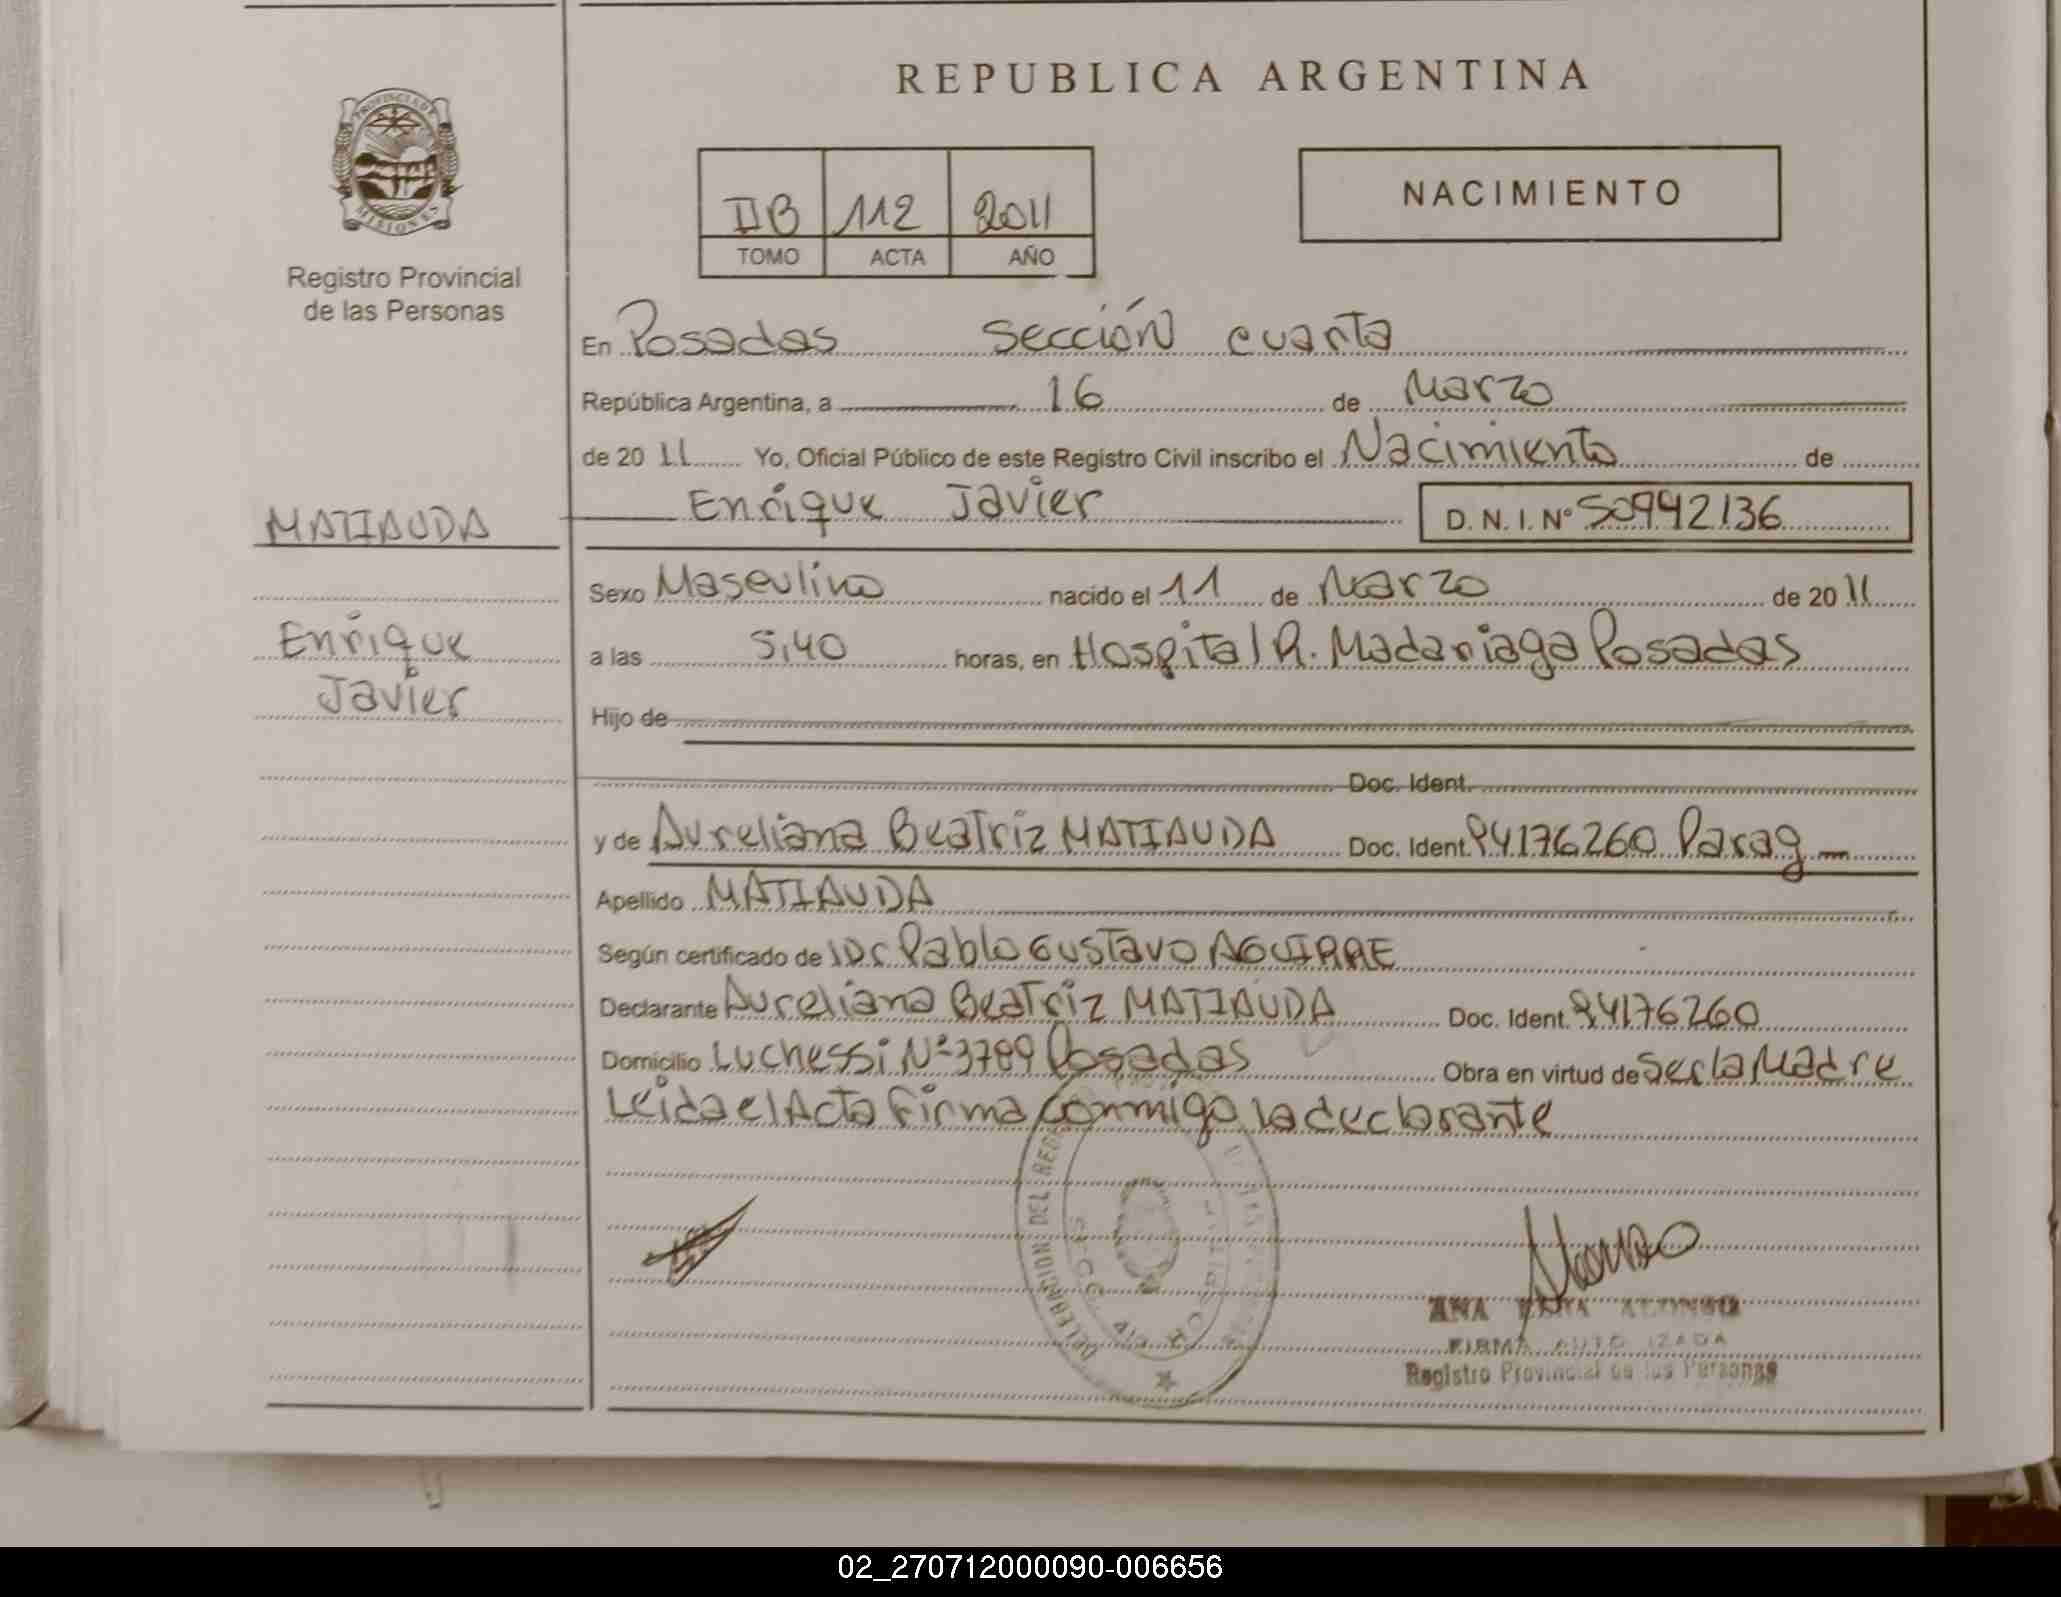 REPUBLICA ARGENTINA
PROVINCIA DE
MISIONES
Registro Provincial
de las Personas
IIB 112 2011
TOMO ACTA AÑO
NACIMIENTO
En Posadas Sección cuarta
República Argentina, a 16 de Marzo
de 2011 Yo, Oficial Público de este Registro Civil inscribo el Nacimiento de
MATIAUDA
Enrique Javier D.N.I. Nº 50942136
Sexo Masculino nacido el 11 de Marzo de 2011
Enrique
a las 5,40 horas, en Hospital R. Madariaga Posadas
Javier
Hijo de
Doc. Ident.
y de Aureliana Beatriz MATIAUDA Doc. Ident. 94176260 Parag
Apellido MATIAUDA
Según certificado de Pablo Gustavo AGUIRRE
Declarante Aureliana Beatriz MATIAUDA Doc. Ident. 94176260
Domicilio Luchessi Nº 3789 Posadas Obra en virtud de Ser la Madre
Leida el Acta Firma conmigo la declarante
DELEGACION DEL REG
ANA ALONSO
FIRMA AUTORIZADA
Registro Provincial de las Personas
02_270712000090-006656